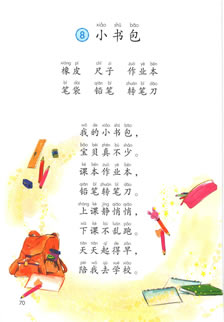 xiǎo shū bāo
8 小书包
xiàng pí chǐ zi zuò yè běn
橡皮 尺子 作业本
bǐ dài qiān bǐ zhuàn bǐ dāo
笔袋 铅笔 转笔刀
wǒ de xiǎo shū bāo
我的小书包，
bǎo bèi zhēn bù shǎo
宝贝真不少。
kè běn zuò yè běn
课本作业本，
qiān bǐ zhuàn bǐ dāo
铅笔转笔刀。
shàng kè jìng qiāo qiāo
上课静悄悄，
xià kè bù luàn pǎo
下课不乱跑。
tiān tiān qǐ de zǎo
天天起得早，
péi wǒ qù xué xiào
陪我去学校。
70